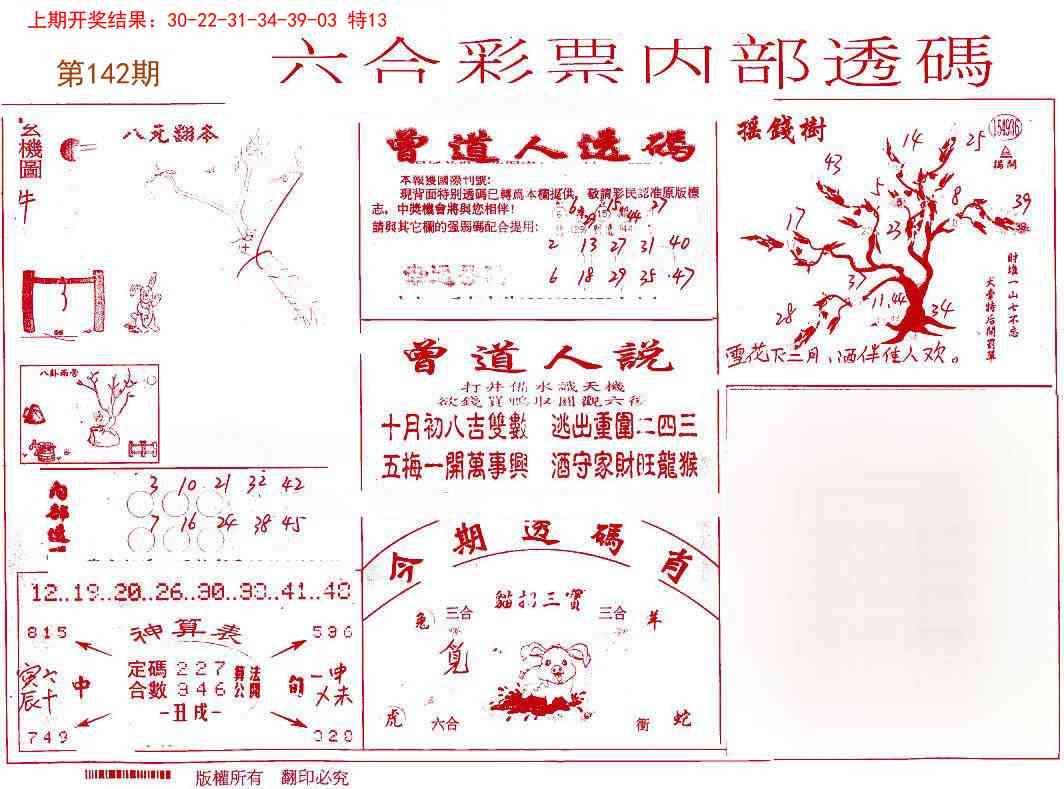 上期开奖结果：30-22-31-34-39-03 特13
第142期
六合彩票内部透碼
玄機圖
牛
八兀翻本
曾道人透码
本報獲國際刊號:
現背面特别透碼已轉爲本欄提供，敬請彩民認准原版標
志，中獎機會將與您相伴！
請與其它欄的强弱碼配合提用:
6 15 37
29 44
2 13 27 31 40
6 18 29 35 47
摇錢樹
154936
揭開
14 25
43
5 8 39
17 23
37
28 11.44 34
財堆一山七不忘
雪花下三月，酒伴佳人欢。
曾道人說
打井備水識天機
十月初八吉雙數 逃出重圍二四三
五梅一開萬事興 酒守家財旺龍猴
内部透
3 10 21 32 42
7 16 24 38 45
12..19..20..26..30..33..41..48
815 神算表 536
定碼 227 算法
合數 346 公開
寅辰 六十 中
旬 一乂 申未
-丑戌-
749 320
今期透碼肖
貓打三寶
兔 三合 三合 羊
覓
虎 六合 衝 蛇
版權所有 翻印必究